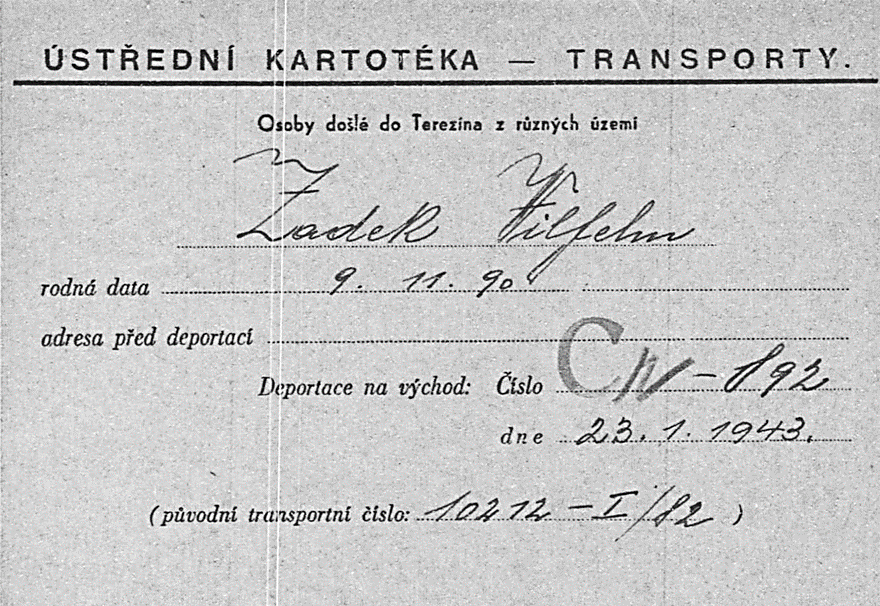 ÚSTŘEDNÍ KARTOTÉKA — TRANSPORTY.
Osoby došlé do Terezína z různých území
Zadek
rodná data 9. 11. 90
adresa před deportací
Deportace na východ: Číslo C – 892
dne 23. 1. 1943.
(původní transportní číslo: 10212 – I/82)